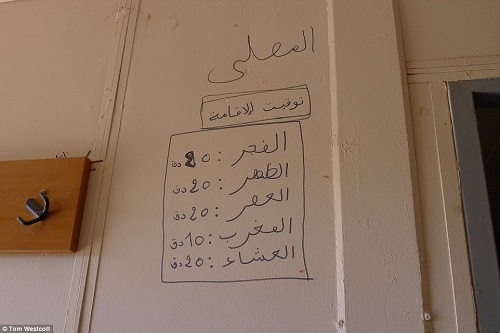 المصلى
توقيت الاقامة
الفجر : 20 دق
الظهر : 20 دق
العصر : 20 دق
المغرب : 10 دق
العشاء : 20 دق
© Tom Westcott